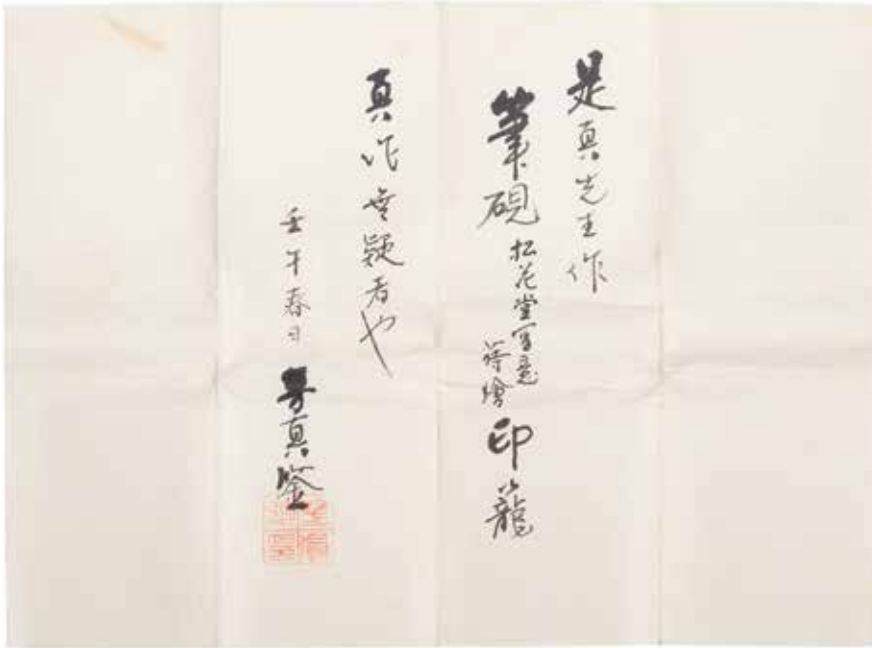 是真先生作
筆硯 松花堂写意
蒔繪 印籠
真作無疑者也
壬午春日 真鑒